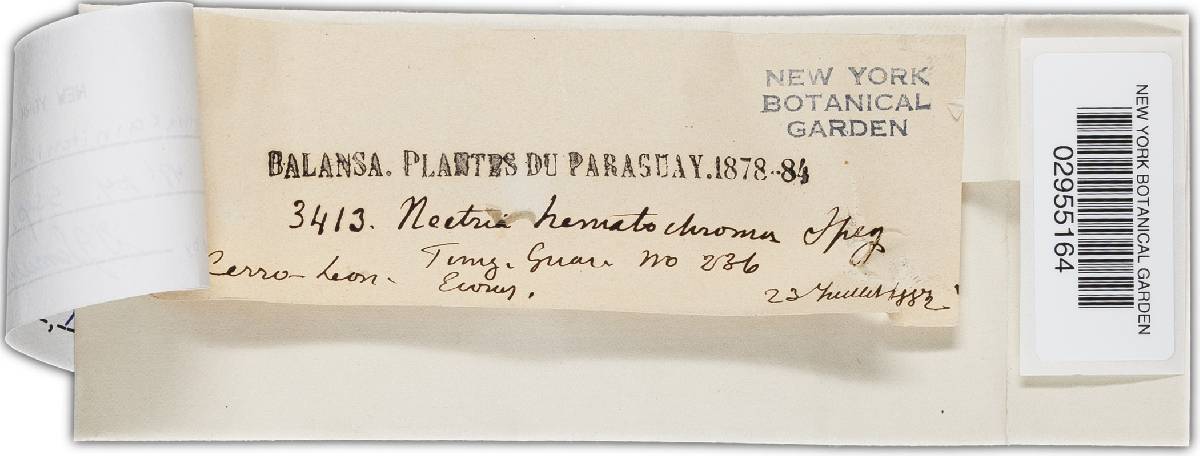 NEW YORK
BOTANICAL
GARDEN
BALANSA. PLANTES DU PARAGUAY. 1878-84
3413. Nectria hematochroma Speg
Fung. Guar. No 236
Cerro-Leon.
23 Juillet 1882
NEW YORK BOTANICAL GARDEN
02955164